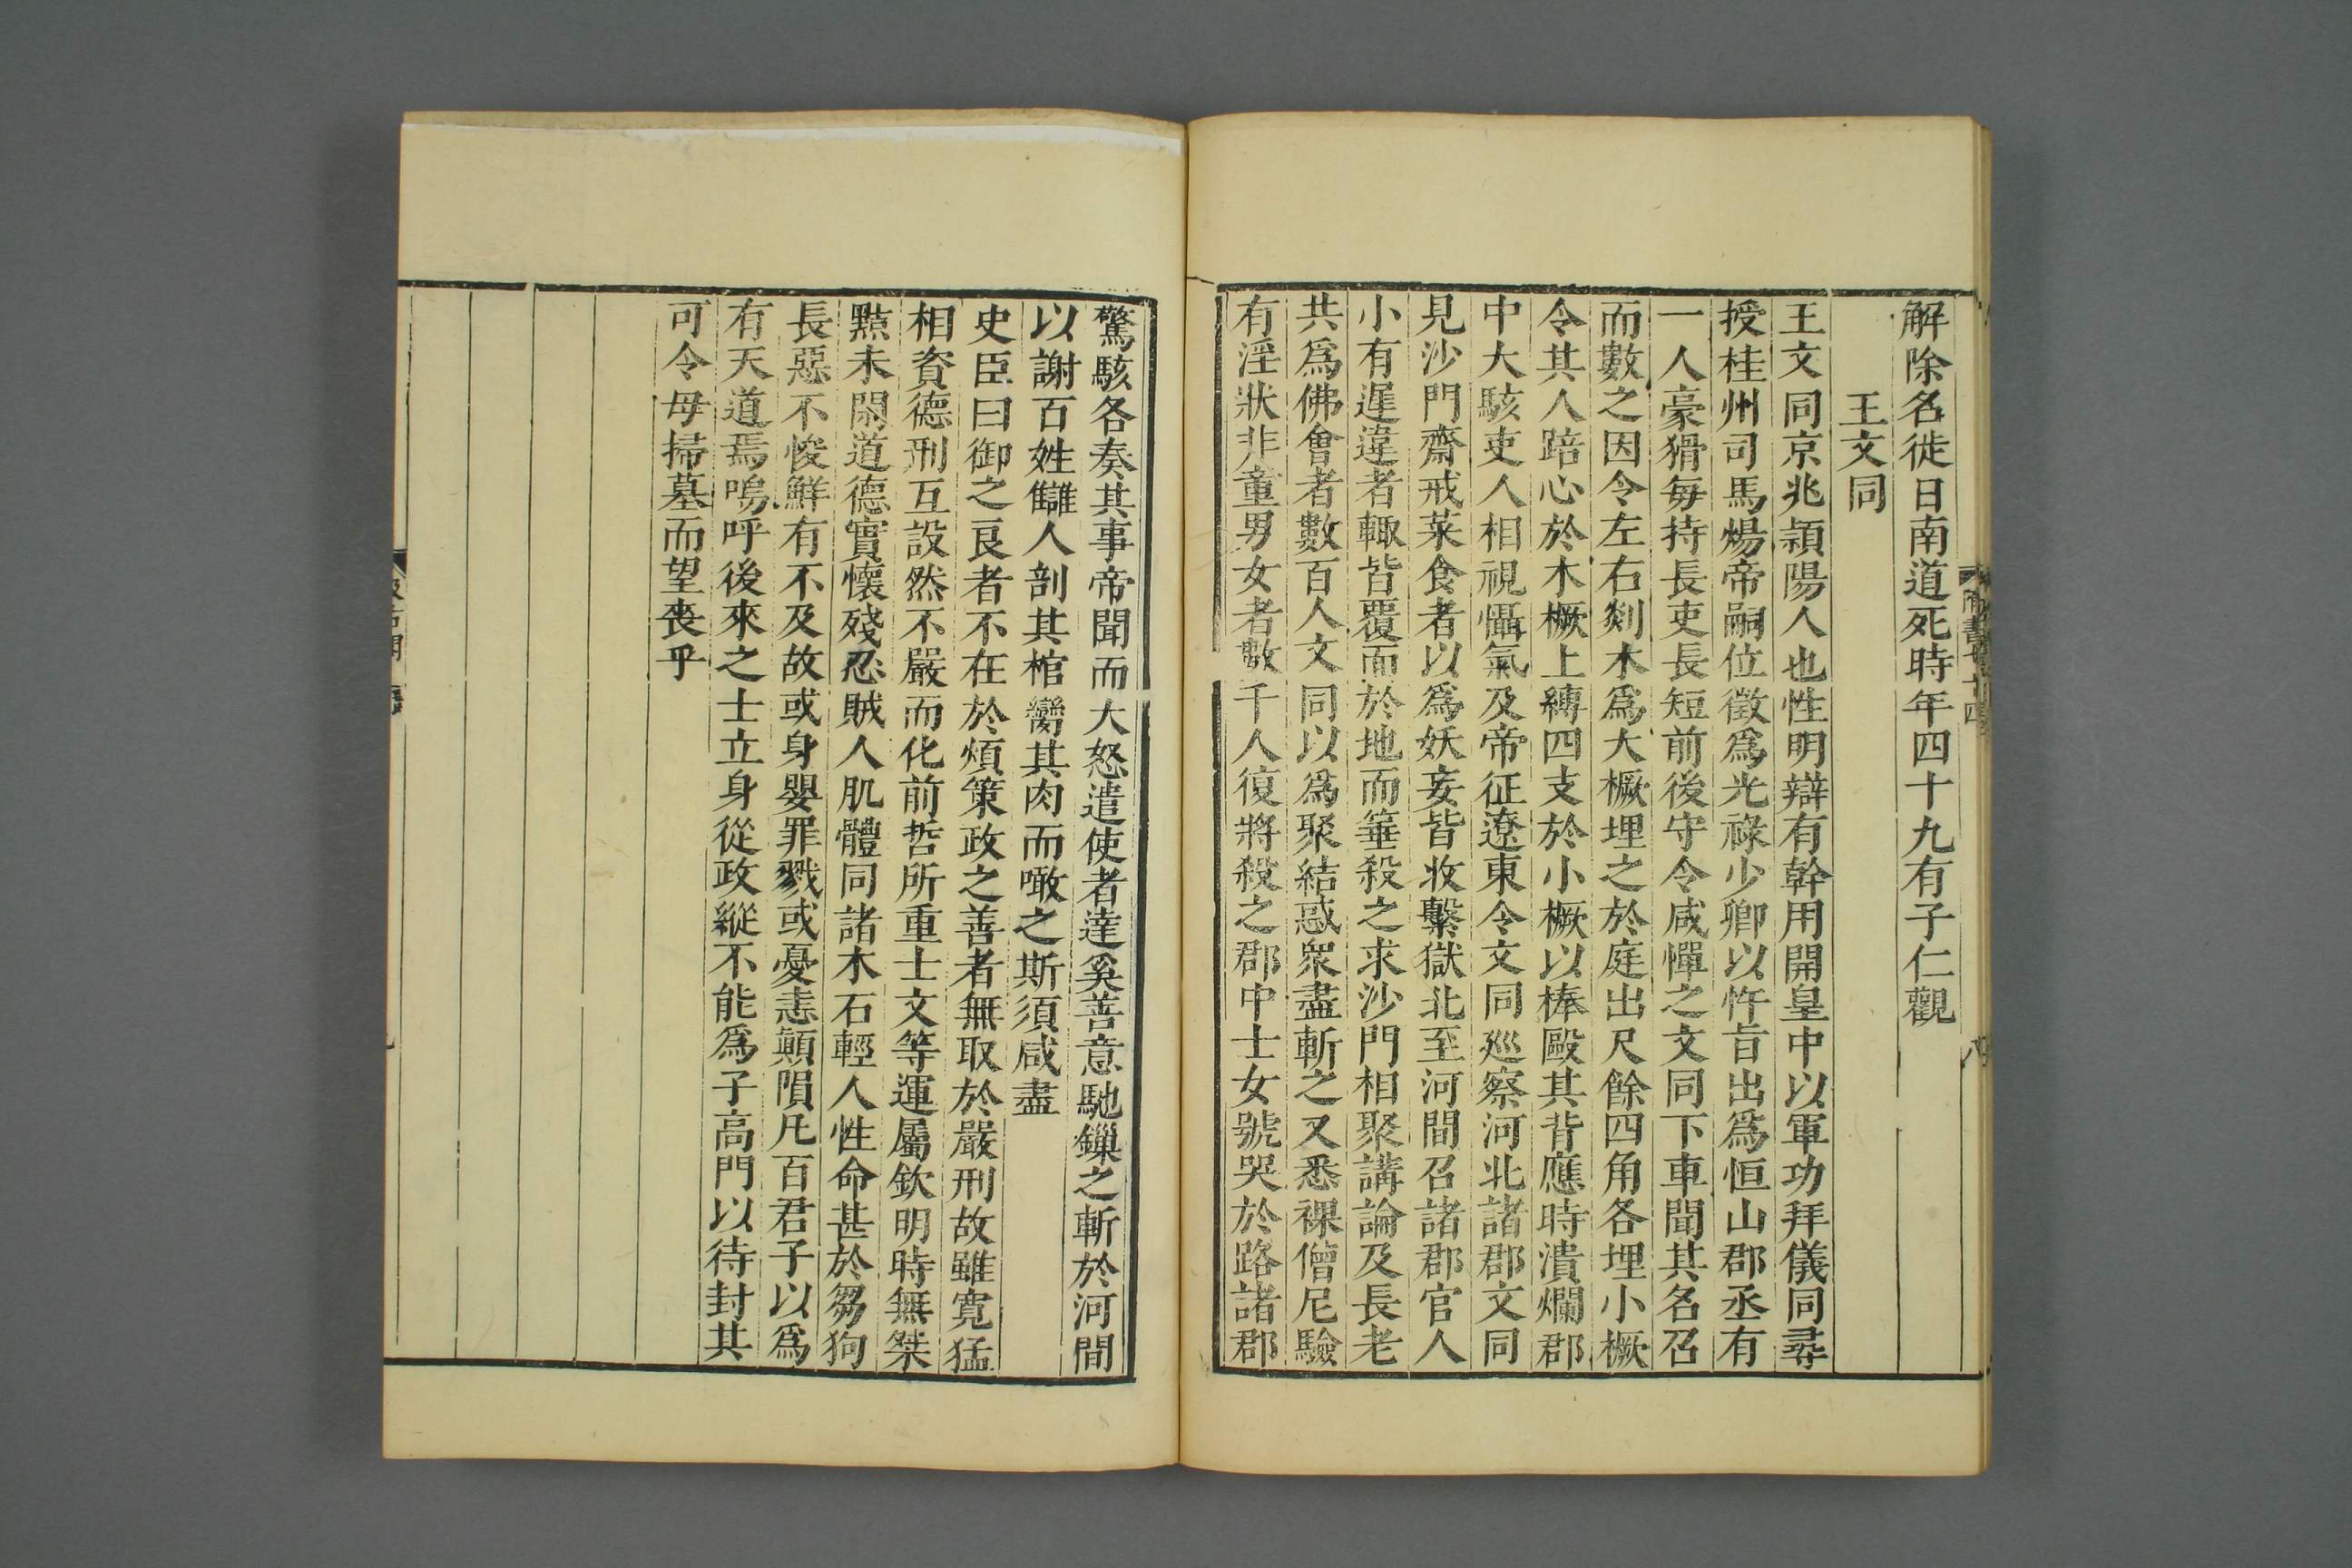 解除名徙日南道死時年四十九有子仁觀
王文同
王文同京兆頴陽人也性明辯有幹用開皇中以軍功拜儀同尋
授桂州司馬煬帝嗣位徵爲光祿少卿以忤旨出爲恒山郡丞有
一人豪猾每持長吏長短前後守令咸憚之文同下車聞其名召
而數之因令左右剡木爲大橛埋之於庭出尺餘四角各埋小橛
令其人踣心於木橛上縛四支於小橛以棒毆其背應時潰爛郡
中大駭吏人相視懾氣及帝征遼東令文同廵察河北諸郡文同
見沙門齋戒菜食者以爲妖妄皆收繫獄北至河間召諸郡官人
小有遲違者輙皆覆面於地而箠殺之求沙門相聚講論及長老
共爲佛會者數百人文同以爲聚結惑衆盡斬之又悉裸僧尼驗
有淫狀非童男女者數千人復將殺之郡中士女號哭於路諸郡
驚駭各奏其事帝聞而大怒遣使者達奚善意馳鏁之斬於河間
以謝百姓讎人剖其棺臠其肉而噉之斯須咸盡
史臣曰御之良者不在於煩策政之善者無取於嚴刑故雖寬猛
相資德刑互設然不嚴而化前哲所重士文等運屬欽明時無桀
黠未閑道德實懷殘忍賊人肌體同諸木石輕人性命甚於芻狗
長惡不悛鮮有不及故或身嬰罪戮或憂恚顛隕凡百君子以爲
有天道焉嗚呼後來之士立身從政縱不能爲子高門以待封其
可令母掃墓而望喪乎